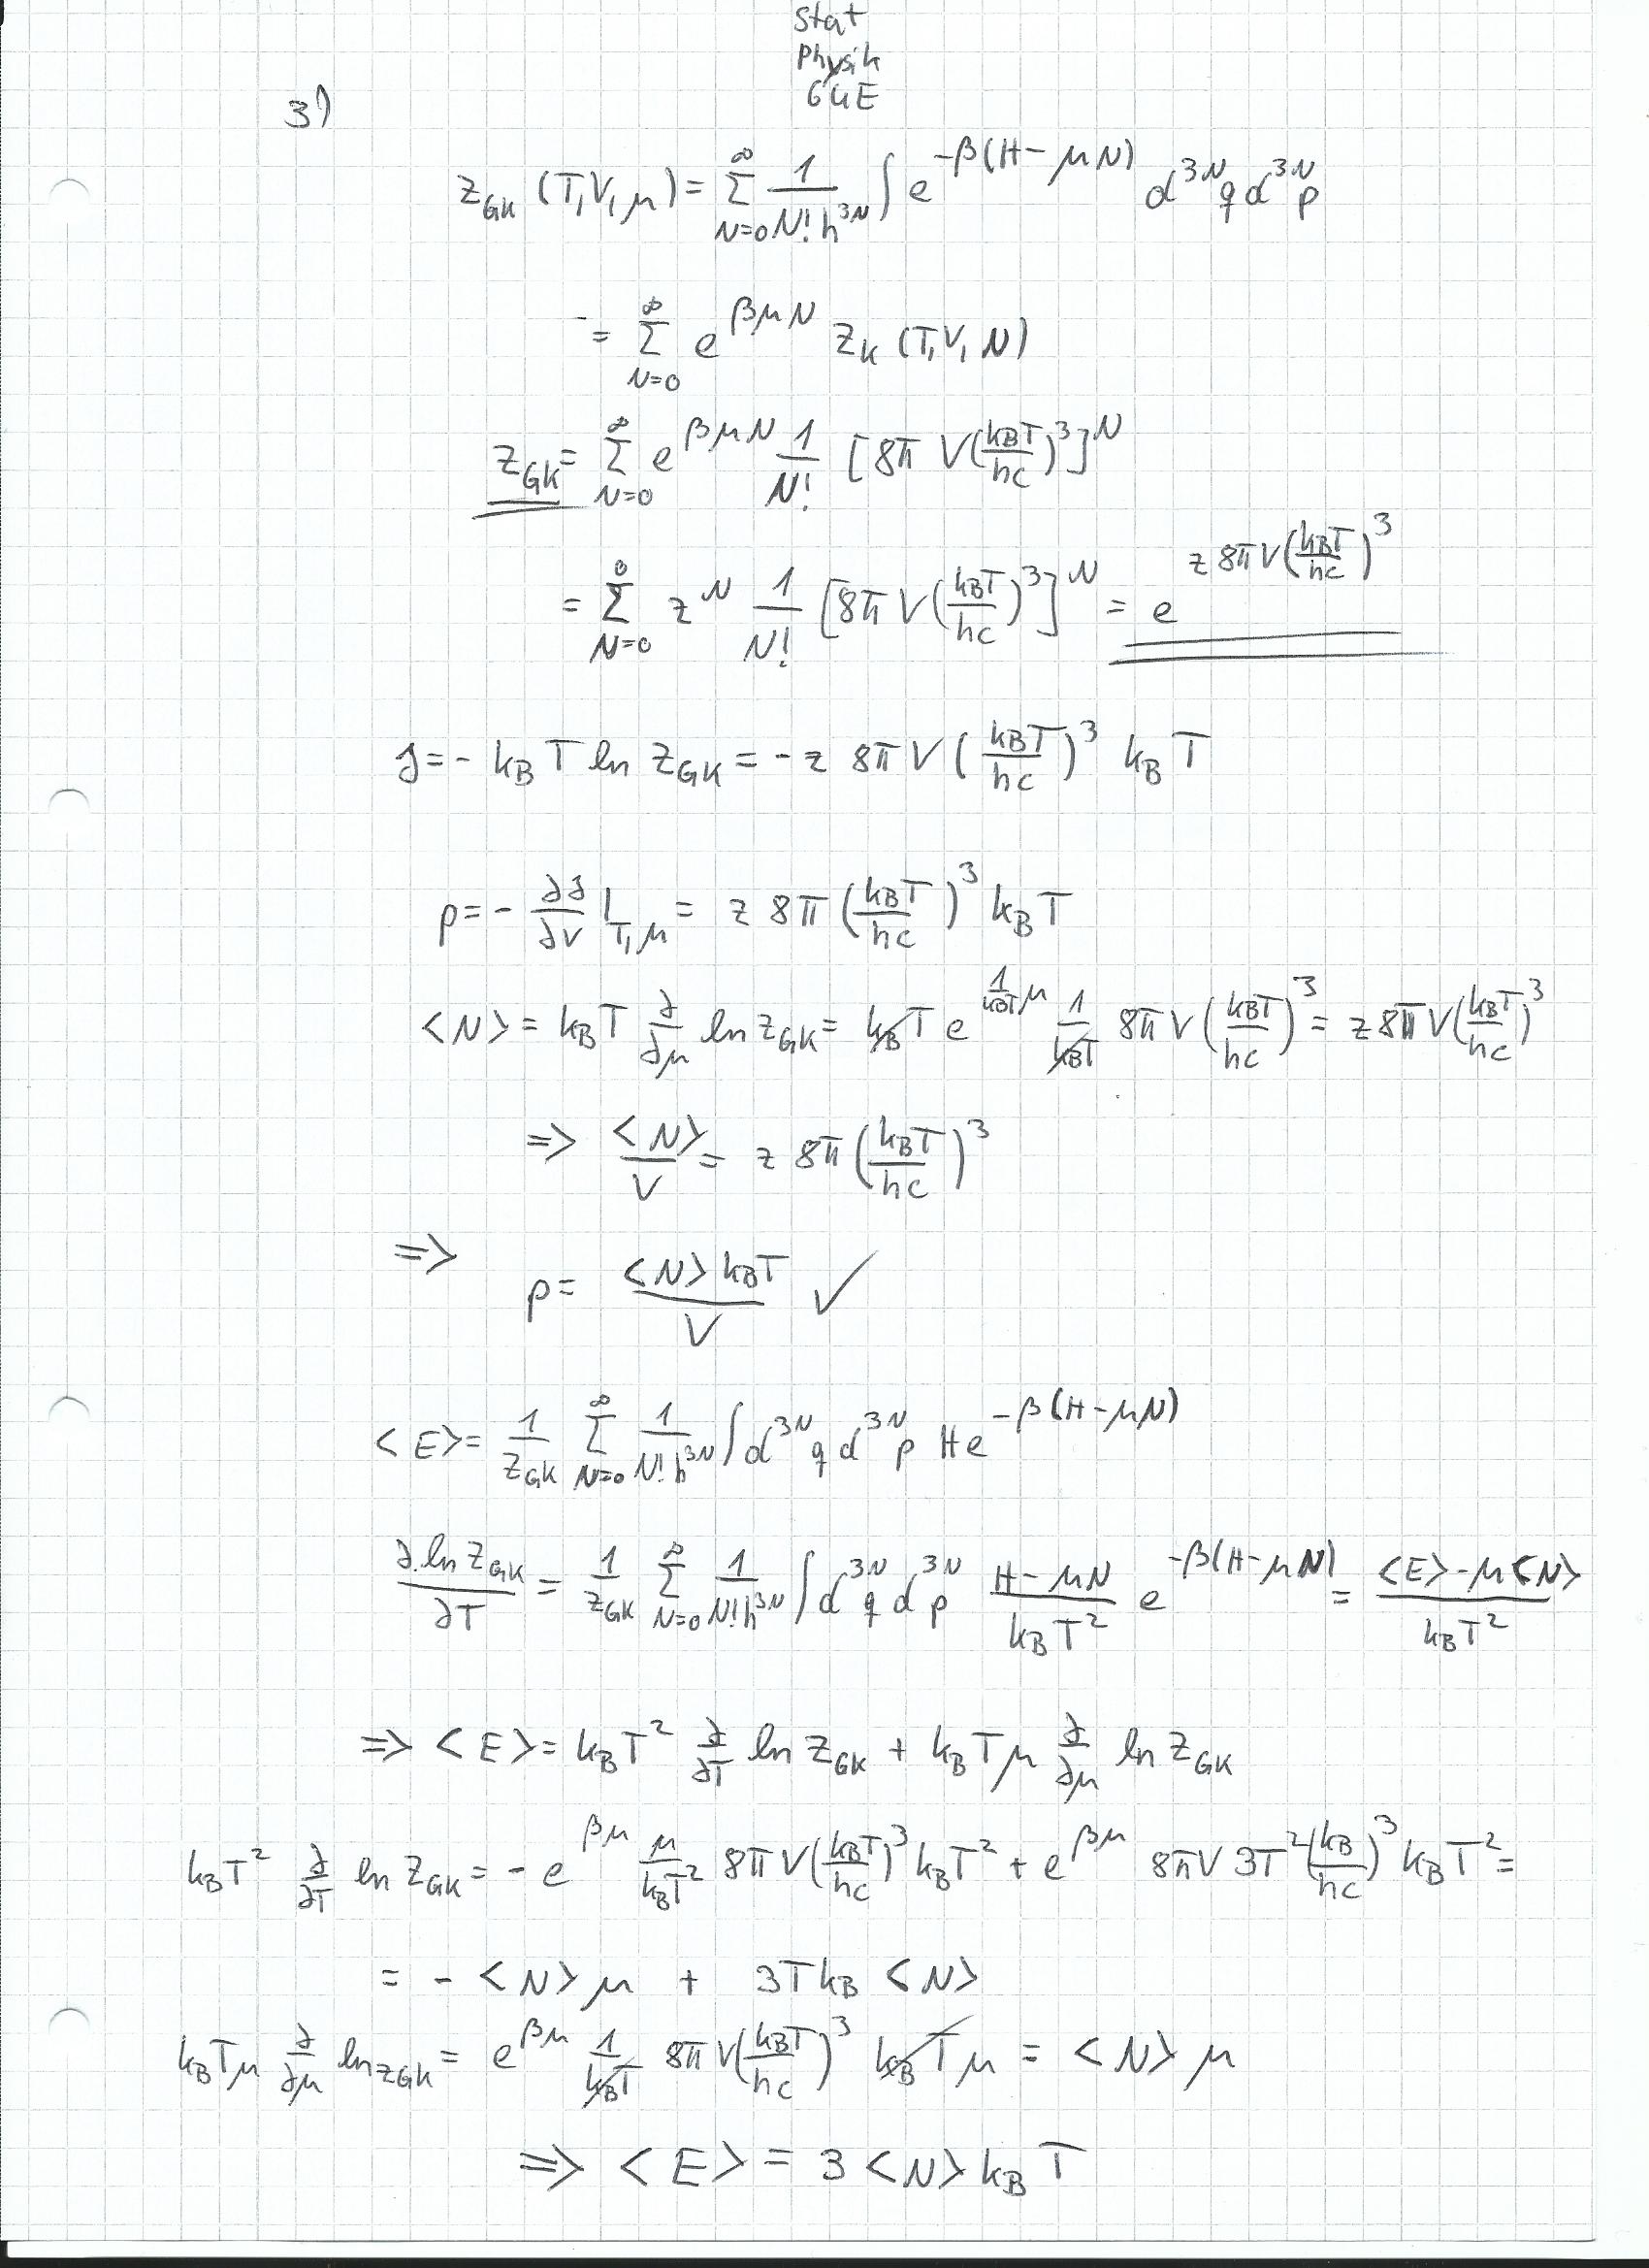 Stat
Physik
GKE
3)
Z_GK (T,V,μ) = ∑_{N=0}^{∞} 1/(N! h^{3N}) ∫ e^{-β(H-μN)} d^{3N}q d^{3N}p
= ∑_{N=0}^{∞} e^{βμN} Z_K (T,V,N)
Z_GK = ∑_{N=0}^{∞} e^{βμN} 1/N! [8π V(k_BT/hc)^3]^N
= ∑_{N=0}^{∞} z^N 1/N! [8π V(k_BT/hc)^3]^N = e^{z 8π V(k_BT/hc)^3}
J = - k_B T ln Z_GK = - z 8π V (k_BT/hc)^3 k_B T
p = - ∂J/∂V |_{T,μ} = z 8π (k_BT/hc)^3 k_B T
<N> = k_B T ∂/∂μ ln Z_GK = k_B T e^{1/(k_BT) μ} 1/(k_BT) 8π V (k_BT/hc)^3 = z 8π V(k_BT/hc)^3
=> <N>/V = z 8π (k_BT/hc)^3
=> p = <N> k_BT / V ✓
<E> = 1/Z_GK ∑_{N=0}^{∞} 1/(N! h^{3N}) ∫ d^{3N}q d^{3N}p H e^{-β(H-μN)}
∂ ln Z_GK/∂T = 1/Z_GK ∑_{N=0}^{∞} 1/(N! h^{3N}) ∫ d^{3N}q d^{3N}p (H-μN)/(k_B T^2) e^{-β(H-μN)} = (<E>-μ<N>)/(k_B T^2)
=> <E> = k_B T^2 ∂/∂T ln Z_GK + k_B T μ ∂/∂μ ln Z_GK
k_B T^2 ∂/∂T ln Z_GK = - e^{βμ} μ/(k_B T^2) 8π V(k_BT/hc)^3 k_B T^2 + e^{βμ} 8π V 3T^2 (k_B/hc)^3 k_B T^2 =
= - <N> μ + 3 T k_B <N>
k_B T μ ∂/∂μ ln Z_GK = e^{βμ} 1/(k_BT) 8π V(k_BT/hc)^3 k_B T μ = <N> μ
=> <E> = 3 <N> k_B T